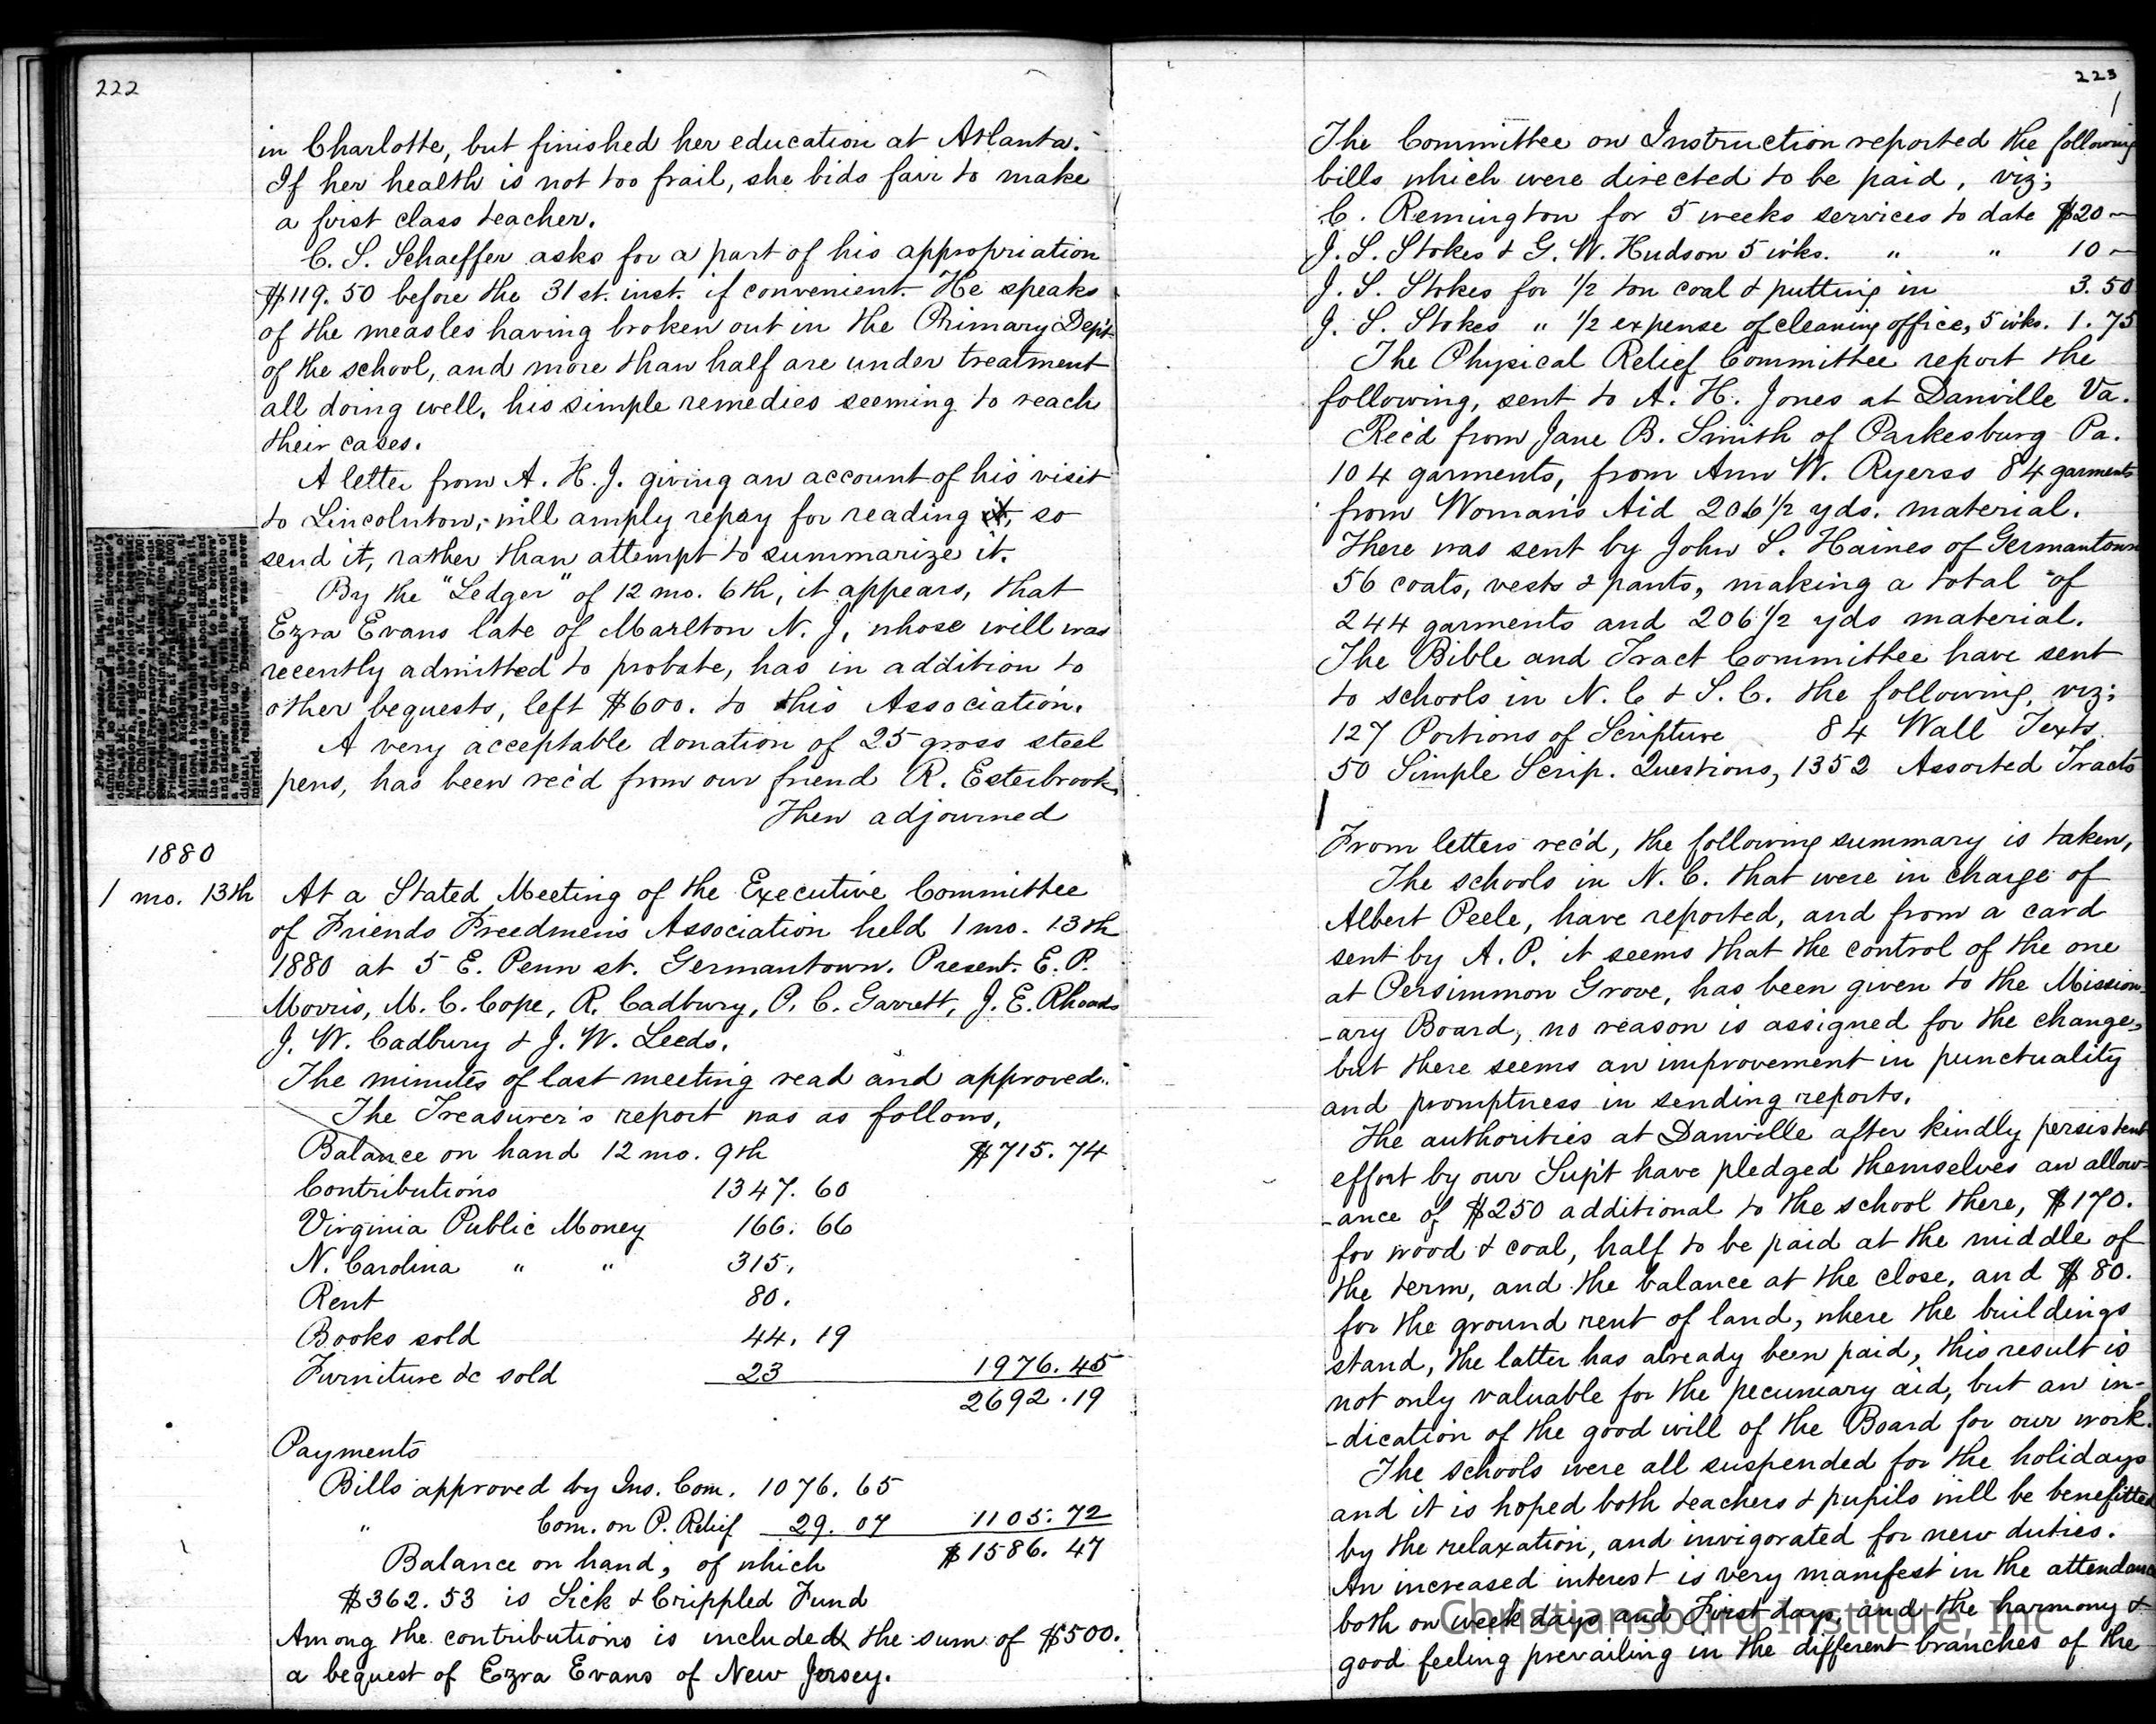 222
in Charlotte, but finished her education at Atlanta.
If her health is not too frail, she bids fair to make
a first class teacher.
C. S. Schaeffer asks for a part of his appropriation
$119.50 before the 31st. inst. if convenient. He speaks
of the measles having broken out in the Primary Dep't
of the school, and more than half are under treatment
all doing well, his simple remedies seeming to reach
their cases.
A letter from A. H. J. giving an account of his visit
to Lincolnton, will amply repay for reading it, so
send it, rather than attempt to summarize it.
By the "Ledger" of 12 mo. 6th, it appears, that
Ezra Evans late of Marlton N. J, whose will was
recently admitted to probate, has in addition to
other bequests, left $600. to this Association.
A very acceptable donation of 25 gross steel
pens, has been rec'd from our friend R. Esterbrook.
Then adjourned
1880
1 mo. 13th At a Stated Meeting of the Executive Committee
of Friends Freedmen's Association held 1 mo. 13th
1880 at 5 E. Penn st. Germantown. Present. E. P.
Morris, M. C. Cope, R. Cadbury, P. C. Garrett, J. E. Rhoads
J. W. Cadbury & J. W. Leeds.
The minutes of last meeting read and approved.
The Treasurer's report was as follows,
Balance on hand 12 mo. 9th $715.74
Contributions 1347.60
Virginia Public Money 166.66
N. Carolina " " 315.
Rent 80.
Books sold 44.19
Furniture &c sold 23 1976.45
2692.19
Payments
Bills approved by Ins. Com. 1076.65
" Com. on P. Relief 29.07 1105.72
Balance on hand, of which $1586.47
$362.53 is Sick & Crippled Fund
Among the contributions is included the sum of $500.
a bequest of Ezra Evans of New Jersey.
223
The Committee on Instruction reported the following
bills which were directed to be paid, viz;
C. Remington for 5 weeks services to date $20—
J. S. Stokes & G. W. Hudson 5 w'ks. " " 10—
J. S. Stokes for 1/2 ton coal & putting in 3.50
J. S. Stokes " 1/2 expense of cleaning office, 5 w'ks. 1.75
The Physical Relief Committee report the
following, sent to A. H. Jones at Danville Va.
Rec'd from Jane B. Smith of Parkesburg Pa.
104 garments, from Ann W. Ryerss 84 garments
from Woman's Aid 206 1/2 yds. material.
There was sent by John S. Haines of Germantown
56 coats, vests & pants, making a total of
244 garments and 206 1/2 yds material.
The Bible and Tract Committee have sent
to schools in N. C & S. C. the following, viz;
127 Portions of Scripture 84 Wall Texts
50 Simple Scrip. Questions, 1352 Assorted Tracts
From letters rec'd, the following summary is taken,
The schools in N. C. that were in charge of
Albert Peele, have reported, and from a card
sent by A. P. it seems that the control of the one
at Persimmon Grove, has been given to the Mission-
-ary Board, no reason is assigned for the change,
but there seems an improvement in punctuality
and promptness in sending reports.
The authorities at Danville after kindly persistent
effort by our Sup't have pledged themselves an allow-
-ance of $250 additional to the school there, $170.
for wood & coal, half to be paid at the middle of
the term, and the balance at the close, and $80.
for the ground rent of land, where the buildings
stand, the latter has already been paid, this result is
not only valuable for the pecuniary aid, but an in-
-dication of the good will of the Board for our work.
The schools were all suspended for the holidays
and it is hoped both teachers & pupils will be benefitted
by the relaxation, and invigorated for new duties.
An increased interest is very manifest in the attendance
both on week days and First days, and the harmony &
good feeling prevailing in the different branches of the
Christiansburg Institute, Inc